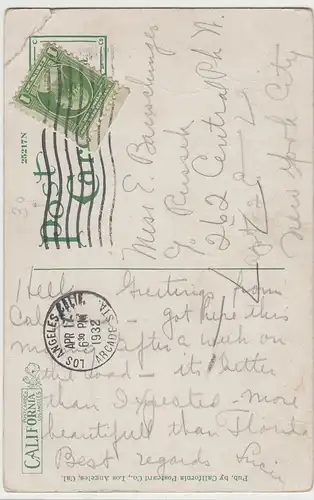 Post
Card
25217N
30
Miss E.
c/o Russek
262 Central Pk W.
New York City
LOS ANGELES, CALIF.
APR 17
6 30 PM
1932
ARCADE STA.
Hello, Greetings from
Calif. - got here this
after a week on
the road - it is better
than I expected - more
beautiful than Florida
Best regards
CALIFORNIA
Pub. by California Postcard Co., Los Angeles, Cal.